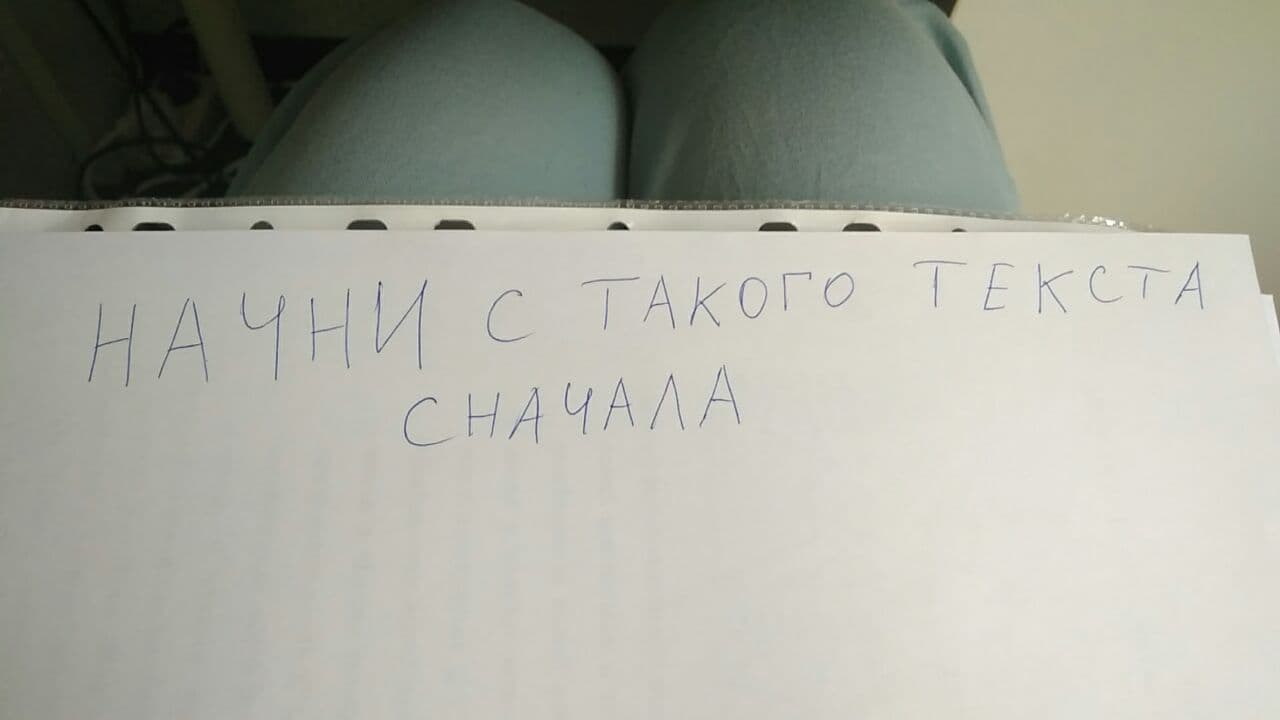 НАЧНИ С ТАКОГО ТЕКСТА
СНАЧАЛА